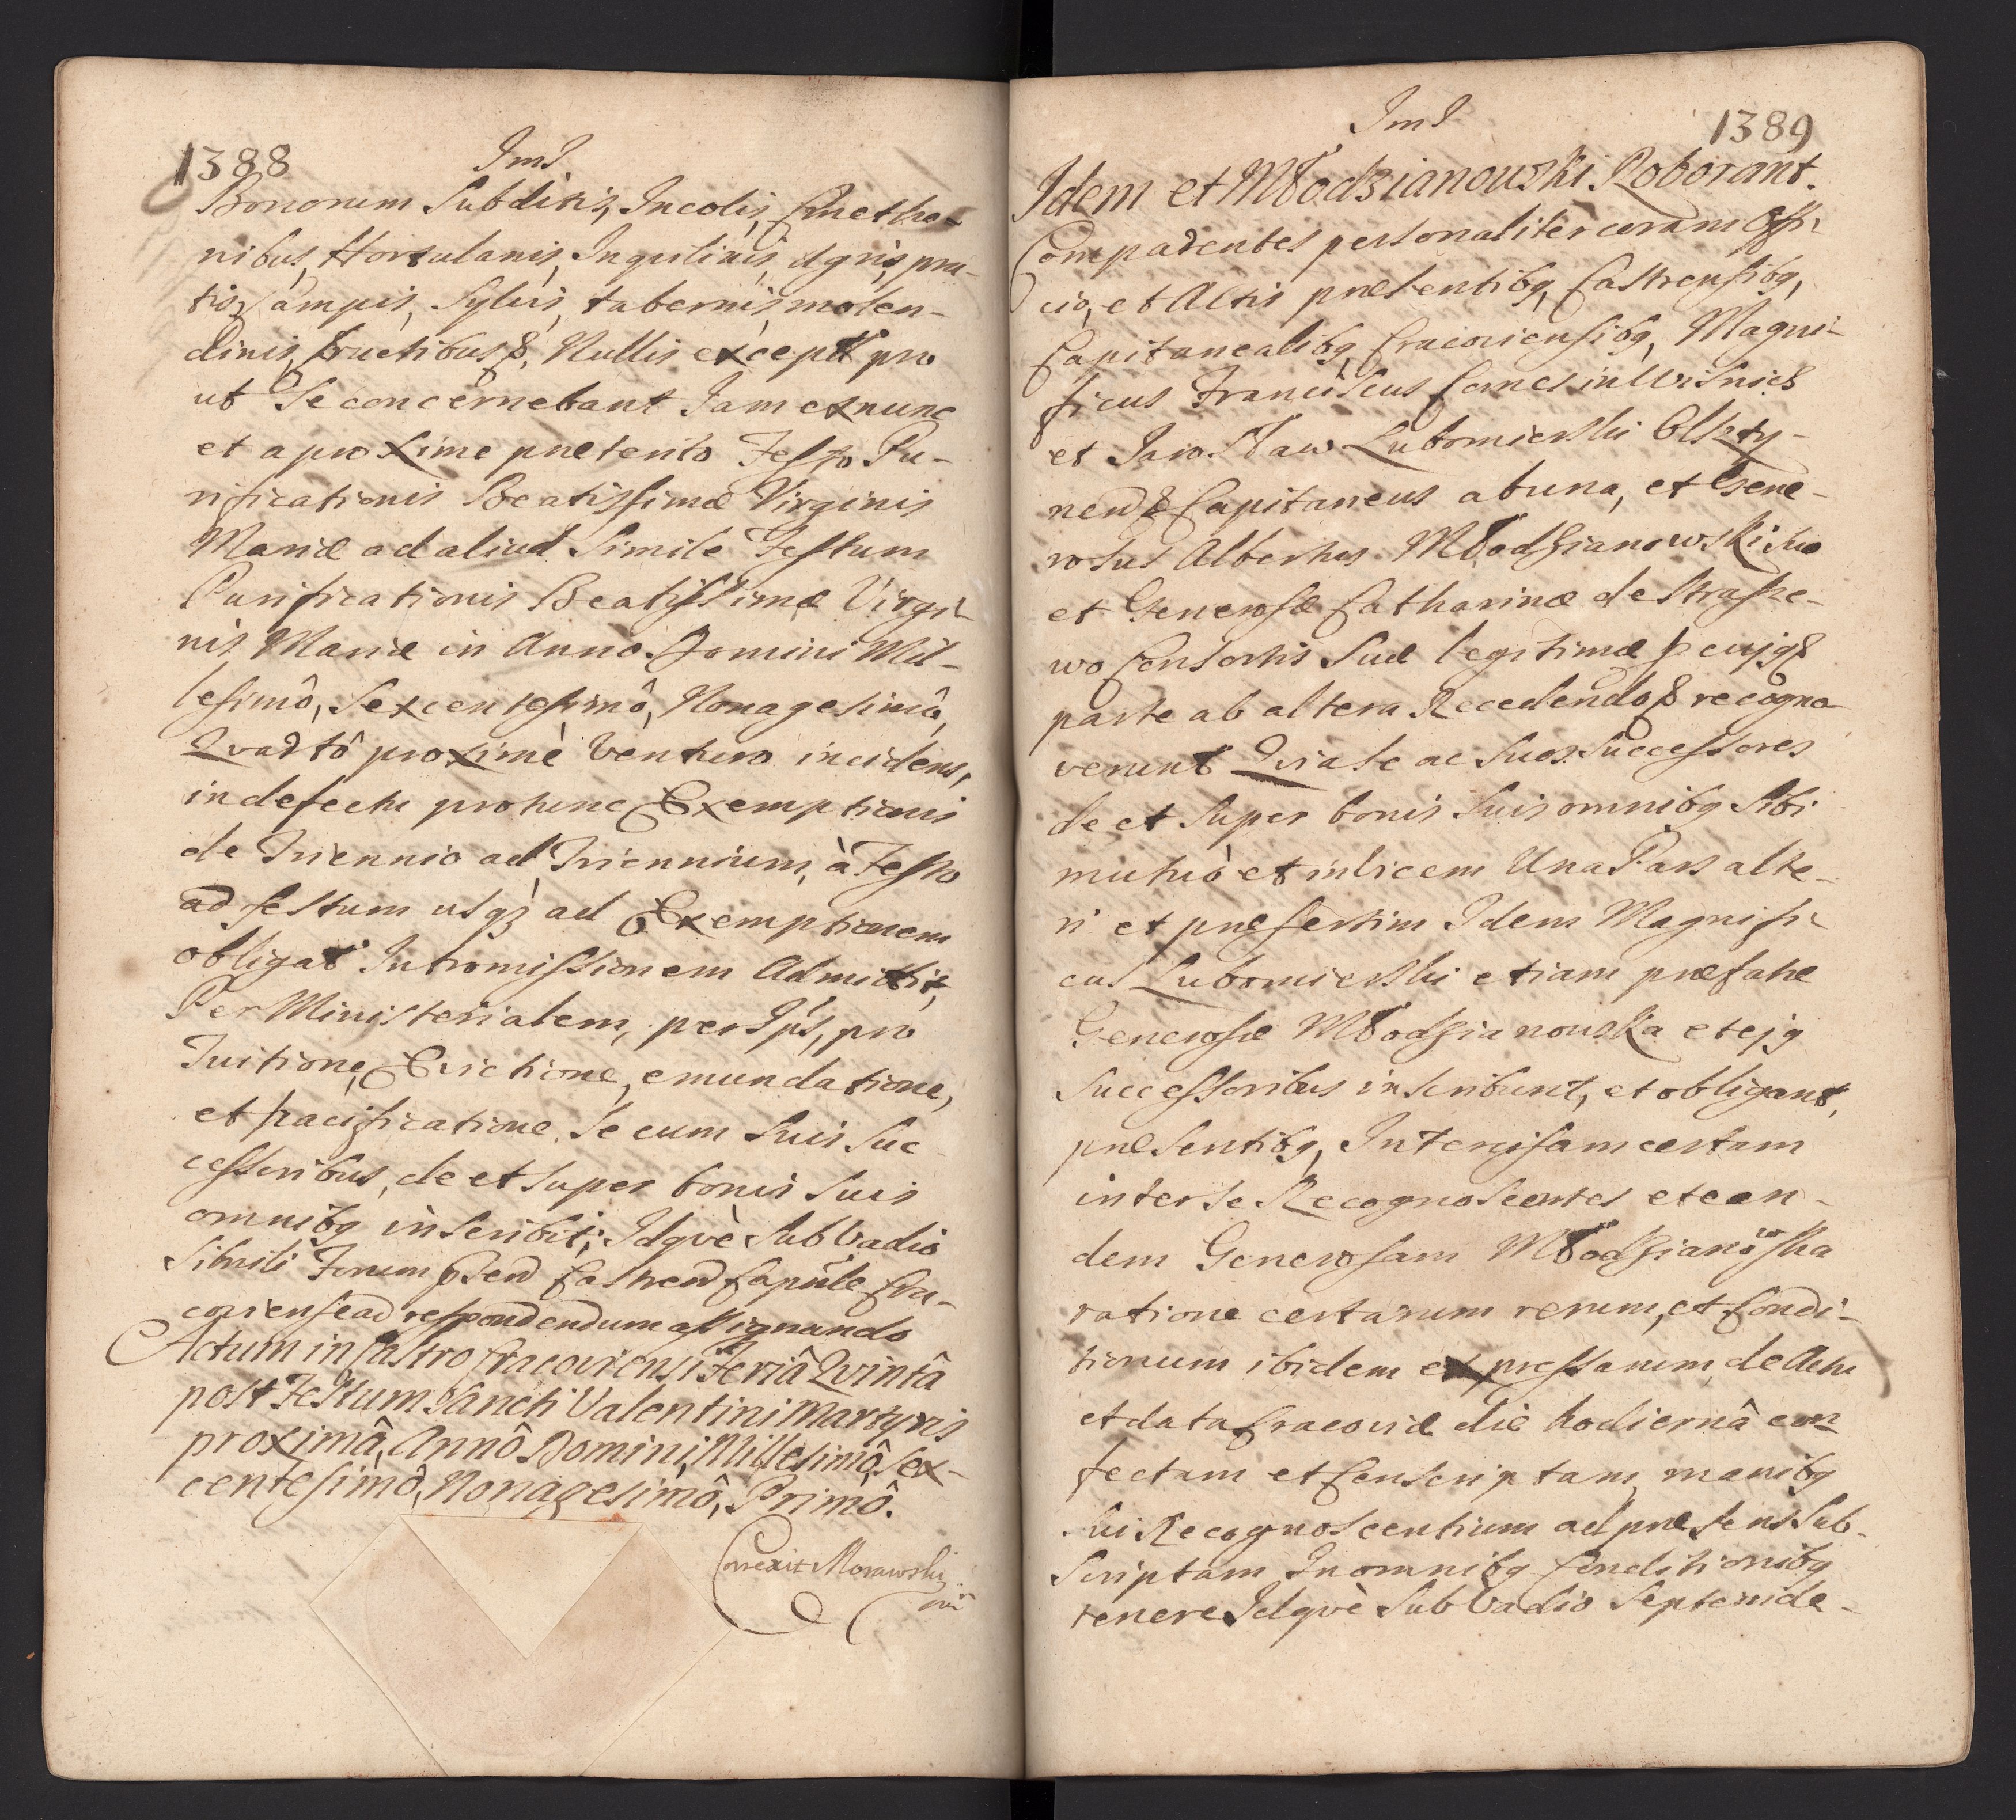 1388
Bonorum Subditis, Incolis, Cmetho-
nibus, Hortulanis, Inquilinis, Agris, pra-
tis, Campis, Sylvis, tabernis, molen-
dinis, fructibus, Nullis exceptis pro
ut Se concernebant Jam ex nunc
et a proxime præterito Festo Pu-
rificationis Beatissimæ Virginis
Mariæ ad aliud Simile Festum
Purificationis Beatissimæ Virgi-
nis Mariæ in Anno Domini Mil-
lesimô, Sexcentesimô, Nonagesimô,
Qvartô proximè Venturo incidens,
in defectu pro tunc Exemptionis
de Triennio ad Triennium, à Festo
ad festum usq3 ad Exemptionem
obligat Intromissionem Admittit,
Per Ministerialem, per Ips, pro
Tuitione, Evictione, emundatione,
et pacificatione, Se cum Suis Suc
cessoribus, de et Super bonis Suis
omnibq inscribit; Idqvè Sub Vadio
Simili Forum Castren Capitle Cra-
coviense ad respondendum assignando
Actum in Castro Cracoviensi Feriâ Qvintâ
post Festum Sancti Valentini Martyris
proximâ, Annô Domini, Millesimô, Sex-
centesimô, Nonagesimô, Primô.
Correxit Morawski
1389
Idem et Młodzianowski Roborant.
Comparentes personaliter coram Offi-
cio, et Actis præsentibq, Castrensibq,
Capitanealibq, Cracoviensibq, Magni-
ficus Franciscus Comes in Wisnicz
et Jarosław Lubomierski Olszty-
nen Capitaneus ab una, et Gene-
rosus Albertus Młodzianowski suo
et Generosæ Catharinæ de Strasze-
wo Consortis Suæ legitimæ
parte ab altera Recedendo recogno-
verunt Qvia Se ac Suos Successores
de et Super bonis Suis omnibq Sibi
mutuò et invicem Una Pars alte-
ri et præsertim Idem Magnifi-
cus Lubomierski etiam præfatæ
Generosæ Młodzianowska et ejq
Successoribus inscribunt, et obligant,
præsentibq, Intercisam certam
inter Se Recognoscentes et ean-
dem Generosam Młodzianoska
ratione certarum rerum, et Condi-
tionum ibidem expressarum, de Actu
et data Cracoviæ die hodiernâ con-
fectam et Conscriptam, manibq
Sui Recognoscentium ad præsens Sub-
scriptam In omnibq Conditionibq
tenere Idqvè Sub Vadio Septemde-